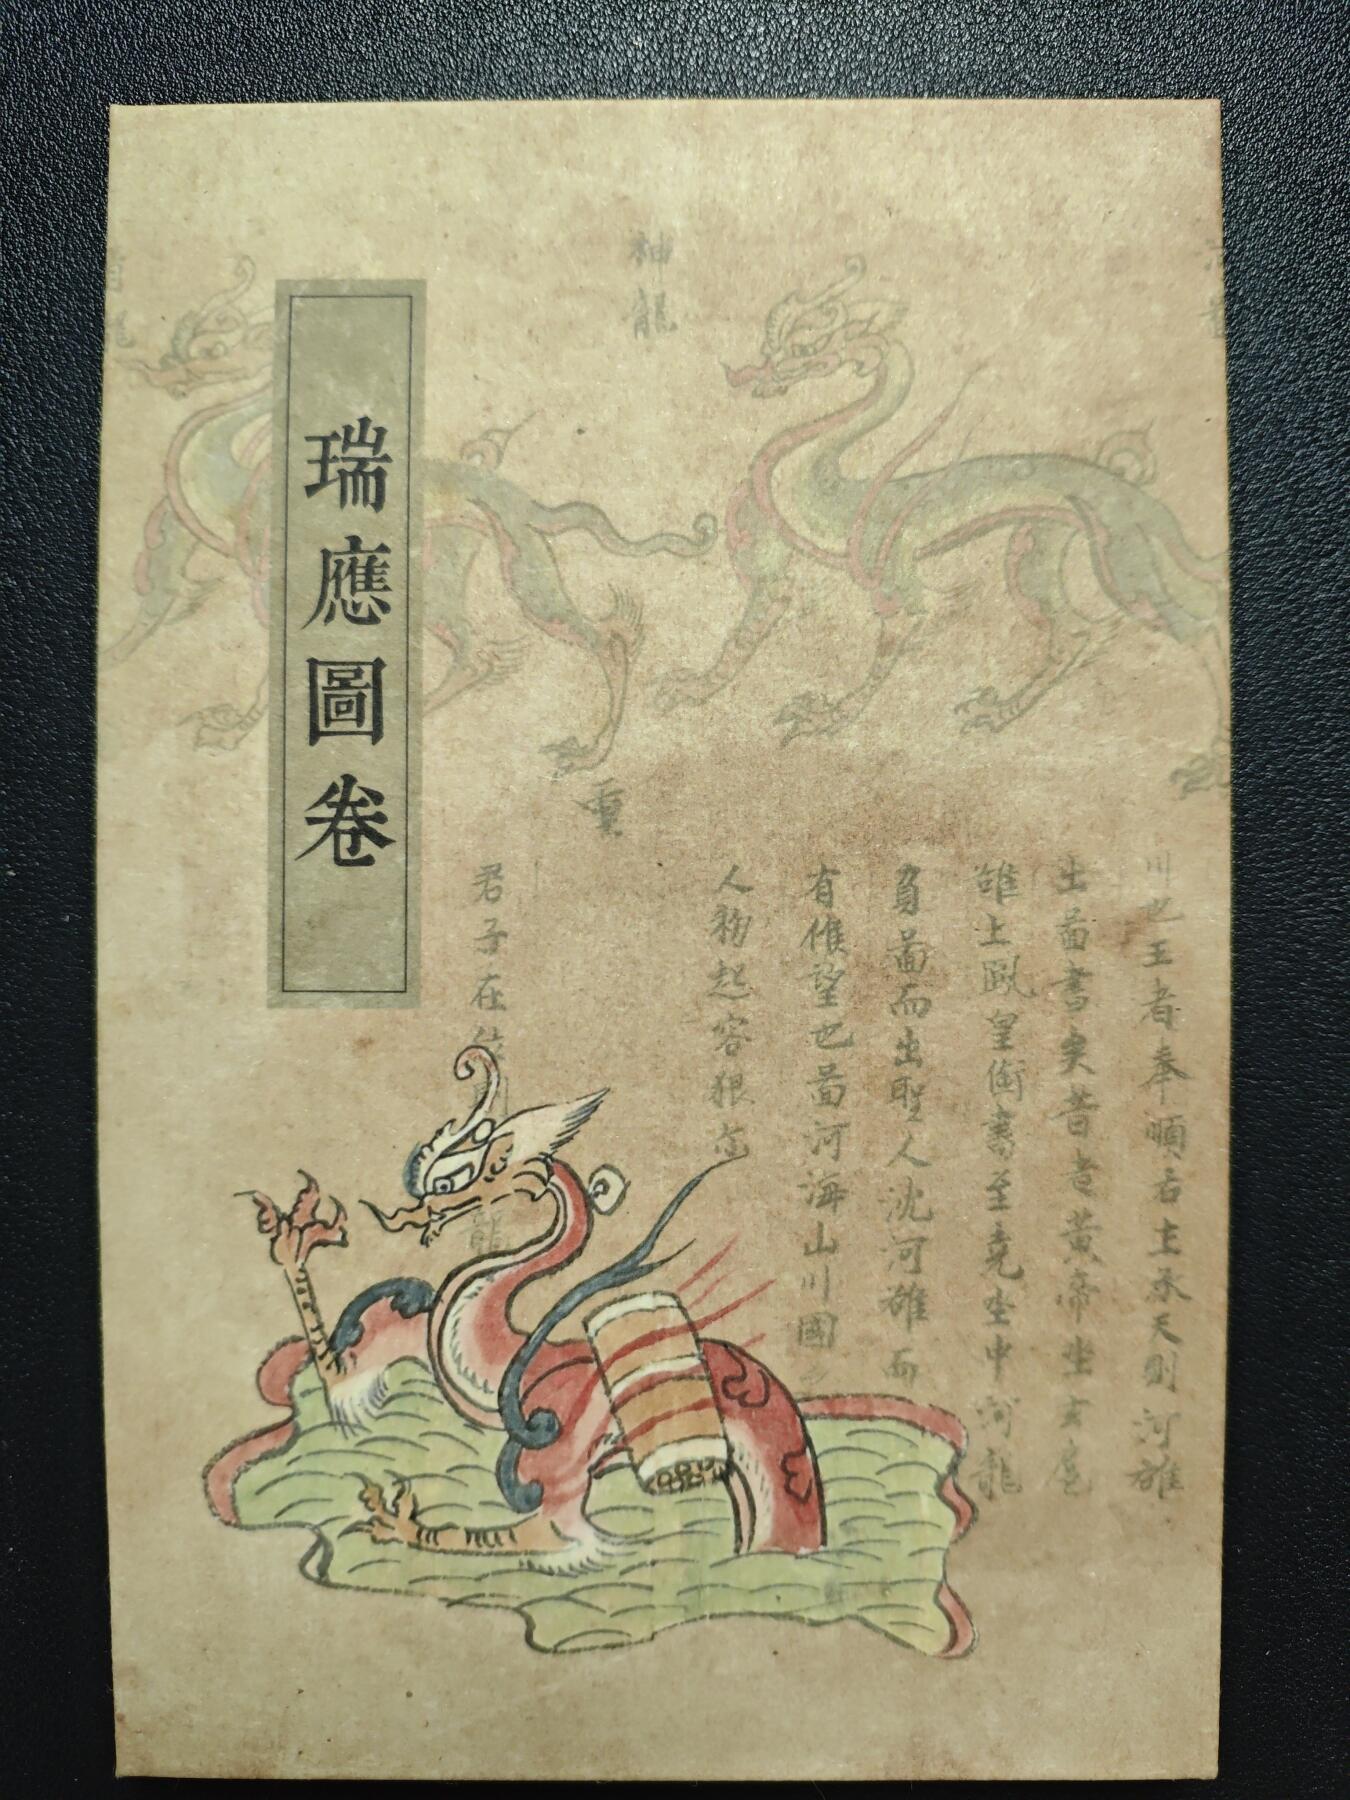 瑞應圖卷
神龍
川也王者奉順后土承天則河雒
出啚書矣昔者黃帝坐玄扈
雒上鳳皇銜書至堯坐中河龍
負啚而出聖人沈河雒而
有候望也啚河海山川國
人物起容狠
君子在位則
龍